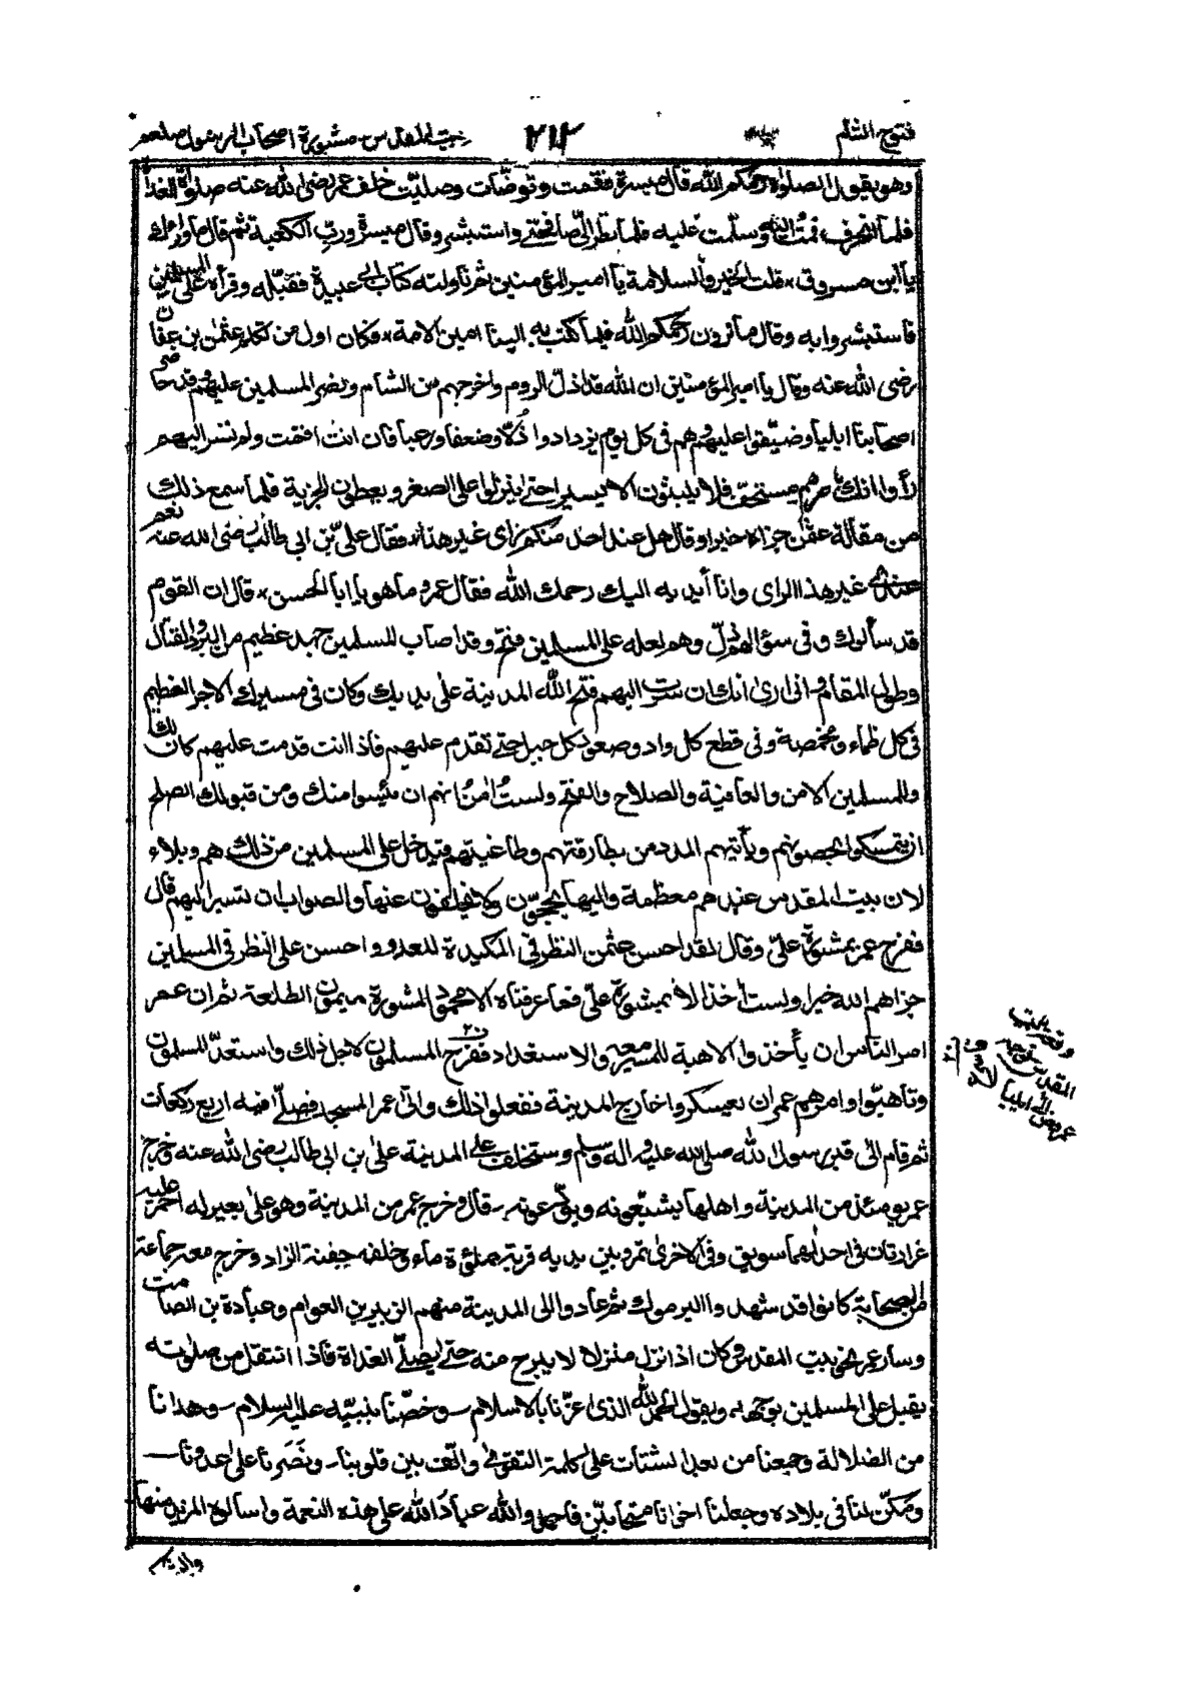 فتوح الشام ٢١٢ بيت المقدس مشورة اصحاب الرسول صلعم
وهو يقول الصلوة رحمكم الله قال ميسرة فقمت وتوضأت وصليت خلف عمر رضى الله عنه صلوة الغداة
فلما انحرف قمت اليه وسلمت عليه فلما نظر الىّ صافحنى واستبشر وقال ميسرة وربّ الكعبة ثم قال ما وراءك
يا ابن مسروق قلت الخير والسلامة يا امير المؤمنين ثم ناولته كتاب ابى عبيدة فقبّله وقرأه على المسلمين
فاستبشروا به وقال ما ترون رحمكم الله فيما كتب به الينا امين الامة فكان اول من تكلم عثمن بن عفان
رضى الله عنه وقال يا امير المؤمنين ان الله قد اذلّ الروم واخرجهم من الشام ونصر المسلمين عليهم وقد حاصر
اصحابنا ايليا وضيّقوا عليهم وهم فى كل يوم يزدادوا ذُلّا وضعفا ورعبا فان انت اقمت ولم تسر اليهم
رأوا انك بامرهم مستخف فلا يلبثون الا يسيرا حتى ينزلوا على الصغر ويعطون الجزية فلما سمع ذلك
من مقالة عثمن جزاه خيرا وقال هل عند احد منكم رأى غير هذا فقال علىّ بن ابى طالب رضى الله عنه نعم
عندى غير هذا الراى وانا أبديه اليك رحمك الله فقال عمر وما هو يا ابا الحسن قال ان القوم
قد سألوك وفى سؤالهم ذلّ وهو لعله على المسلمين فتح وقد اصاب المسلمين جهد عظيم من البرد والقتال
وطول المقام وانى ارى انك ان سرت اليهم فتح الله المدينة على يديك وكان فى مسيرك الاجر العظيم
فى كل ظماء ومخمصة وفى قطع كل واد وصعود كل جبل حتى تقدم عليهم فاذا انت قدمت عليهم كان لك
وللمسلمين الامن والعافية والصلاح والفتح ولست امن انهم ان يئسوا منك ومن قبولك الصلح
ان يتمسكوا بحصونهم ويأتيهم المدد من بطارقتهم وطاغيتهم فيدخل على المسلمين من ذلك هم وبلاء
لان بيت المقدس عندهم معظمة واليها يحجّون ولا يتخلفون عنها والصواب ان تسير اليهم قال
ففرح عمر بمشورة علىّ وقال لقد احسن عثمن النظر فى المكيدة للعدو واحسن على النظر فى المسلمين
جزاهم الله خيرا ولست أخذ الا بمشورة علىّ فما عرفناه الا محمود المشورة ميمون الطلعة ثم ان عمر
امر الناس ان يأخذوا الاهبة للمسير معه والاستعداد ففرح المسلمون لاجل ذلك واستعدّ المسلمون
وتأهبّوا وامرهم عمر ان يعسكروا خارج المدينة ففعلوا ذلك واتى عمر المسجد فصلّى فيه اربع ركعات
ثم قام الى قبر رسول الله صلى الله عليه واله وسلم واستخلف على المدينة على بن ابى طالب رضى الله عنه وخرج
عمر يومئذ من المدينة واهلها يشيّعونه ويودّعونه قال وخرج عمر من المدينة وهو على بعير له احمر عليه
غرارتان فى احدٰهما سويق وفى الاخرى تمر وبين يديه قربة مملوءة ماء وخلفه جفنة الزاد وخرج معه جماعة
من الصحابة كانوا قد شهدوا اليرموك ثم عادوا الى المدينة منهم الزبير بن العوام وعبادة بن الصامت
وسار عمر الى بيت المقدس وكان اذا نزل منزلا لا يبرح منه حتى يصلّى الغداة فاذا انتقل من صلوته
يقبل على المسلمين بوجهه ويقول الحمد لله الذى اعزّنا بالاسلام وخصّنا بنبيّه عليه السلام وهدانا
من الضلالة وجمعنا من بعد الشتات على كلمة التقوى والّف بين قلوبنا ونَصَرنا على عدونا
ومكّن لنا فى بلاده وجعلنا اخوانا متحابين فاحمدوا الله عباد الله على هذه النعمة واسألوه المزيد منها
المقدس
ايليا